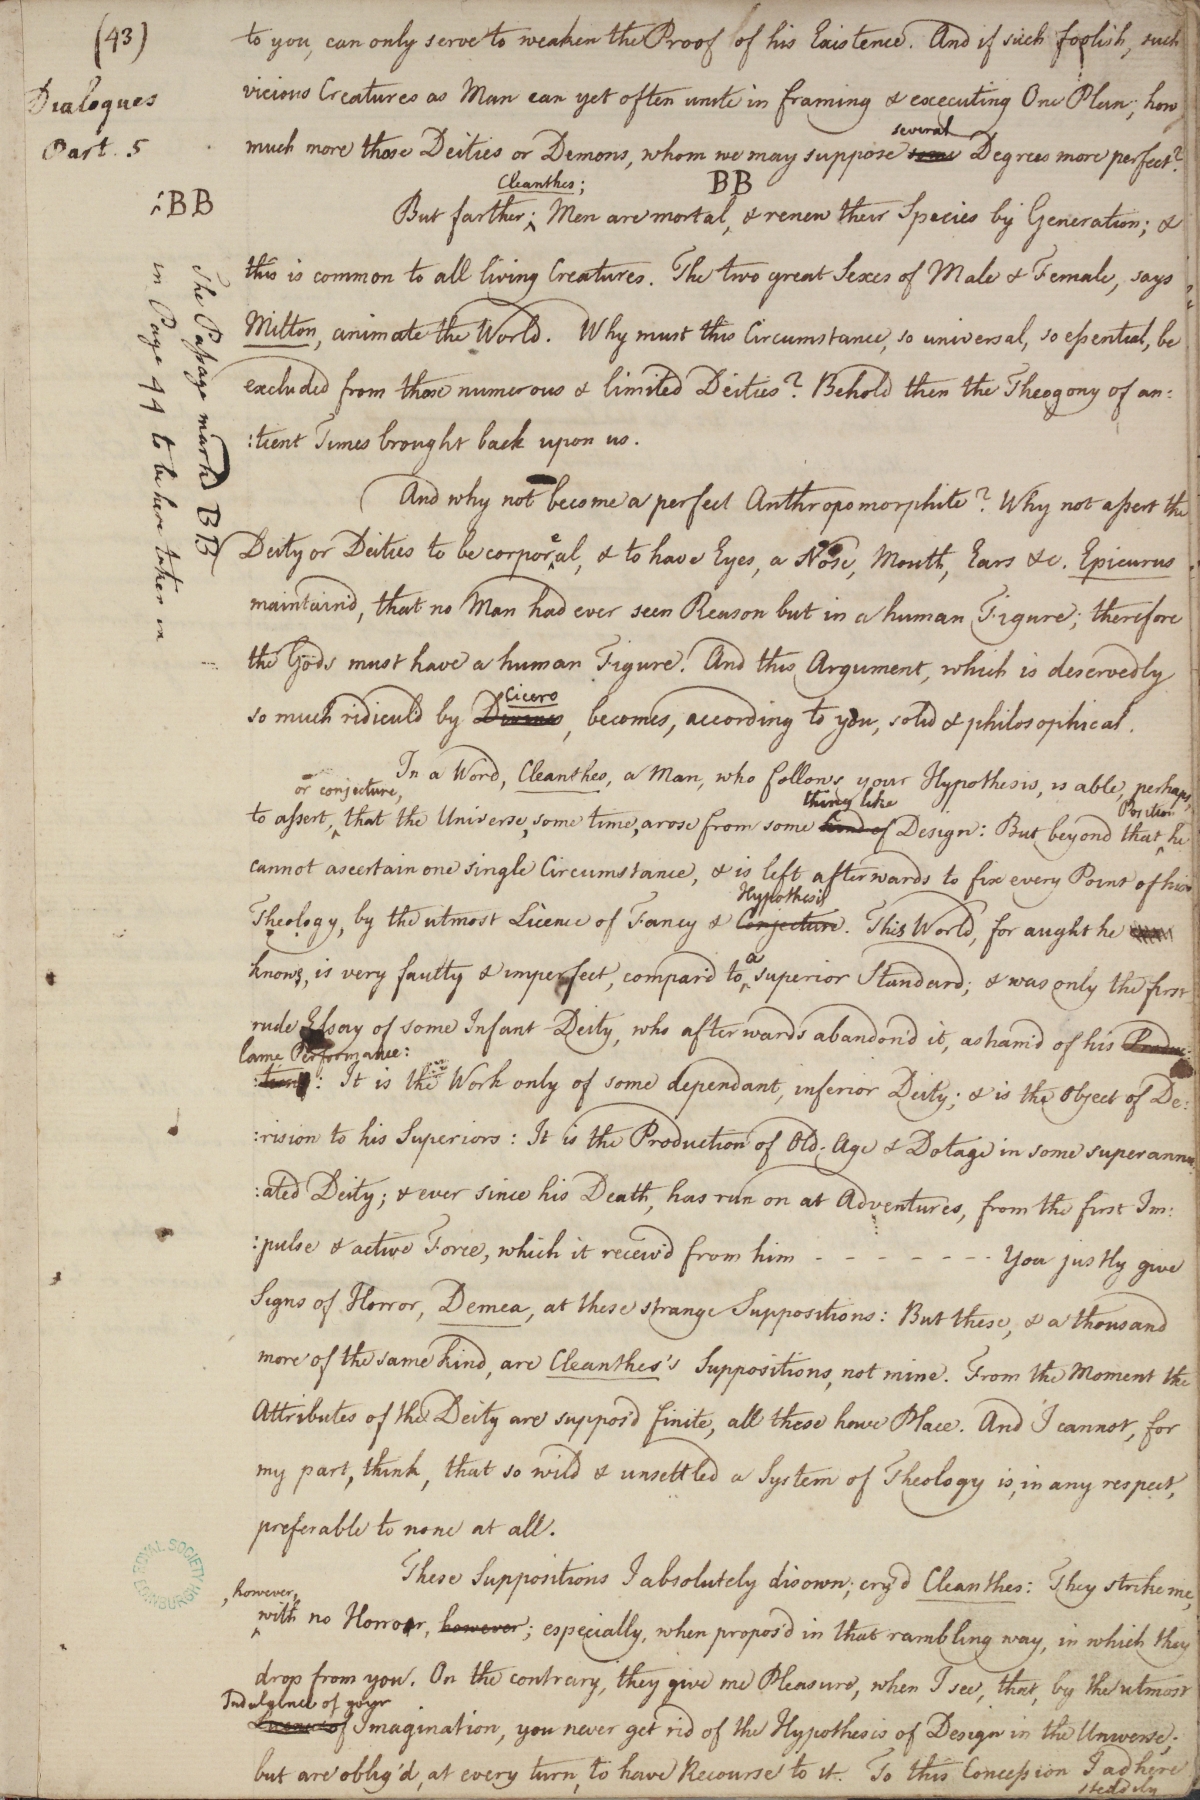 (43)
Dialogues
Part. 5
to you, can only serve to weaken the Proof of his Existence. And if such foolish, such
vicious Creatures as Man can yet often unite in framing & executing One Plan; how
several
much more those Deities or Demons, whom we may suppose some Degrees more perfect?
Cleanthes; BB
:BB
But farther; Men are mortal, & renew their Species by Generation; &
this is common to all living Creatures. The two great Sexes of Male & Female, says
Milton, animate the World. Why must this Circumstance, so universal, so essential, be
excluded from those numerous & limited Deities? Behold then the Theogony of an:
:tient Times brought back upon us.
The Passage markd BB
in Page 44 to be here taken in
And why not become a perfect Anthropomorphite? Why not assert the
Deity or Deities to be corporeal, & to have Eyes, a Nose, Mouth, Ears &c. Epicurus
maintain'd, that no Man had ever seen Reason but in a human Figure; therefore
the Gods must have a human Figure. And this Argument, which is deservedly
Cicero
so much ridicul'd by, becomes, according to you, solid & philosophical.
In a Word, Cleanthes, a Man, who follows your Hypothesis, is able, perhaps,
or conjecture, thing like Position
to assert, that the Universe, some time, arose from some kind of Design: But beyond that he
cannot ascertain one single Circumstance, & is left afterwards to fix every Point of his
Hypothesis
Theology, by the utmost Licence of Fancy & Conjecture. This World, for aught he
knows, is very faulty & imperfect, compar'd to a superior Standard; & was only the first
rude Essay of some Infant Deity, who afterwards abandon'd it, asham'd of his Produc:
lame Performance:
:tion: It is the Work only of some dependant, inferior Deity; & is the Object of De:
:rision to his Superiors: It is the Production of Old-Age & Dotage in some superannu
:ated Deity; & ever since his Death, has run on at Adventures, from the first Im:
:pulse & active Force, which it receiv'd from him - - - - - - - You justly give
Signs of Horror, Demea, at these strange Suppositions: But these, & a thousand
more of the same kind, are Cleanthes's Suppositions, not mine. From the Moment the
Attributes of the Deity are suppos'd finite, all these have Place. And I cannot, for
my part, think, that so wild & unsettled a System of Theology is, in any respect,
preferable to none at all.
These Suppositions I absolutely disown; cry'd Cleanthes: They strike me,
, however,
with no Horror, however; especially, when propos'd in that rambling way, in which they
drop from you. On the contrary, they give me Pleasure, when I see, that, by the utmost
Indulgence of your
Licence of Imagination, you never get rid of the Hypothesis of Design in the Universe;
but are oblig'd, at every turn, to have Recourse to it. To this Concession I adhere
steddily
ROYAL SOCIETY
EDINBURGH